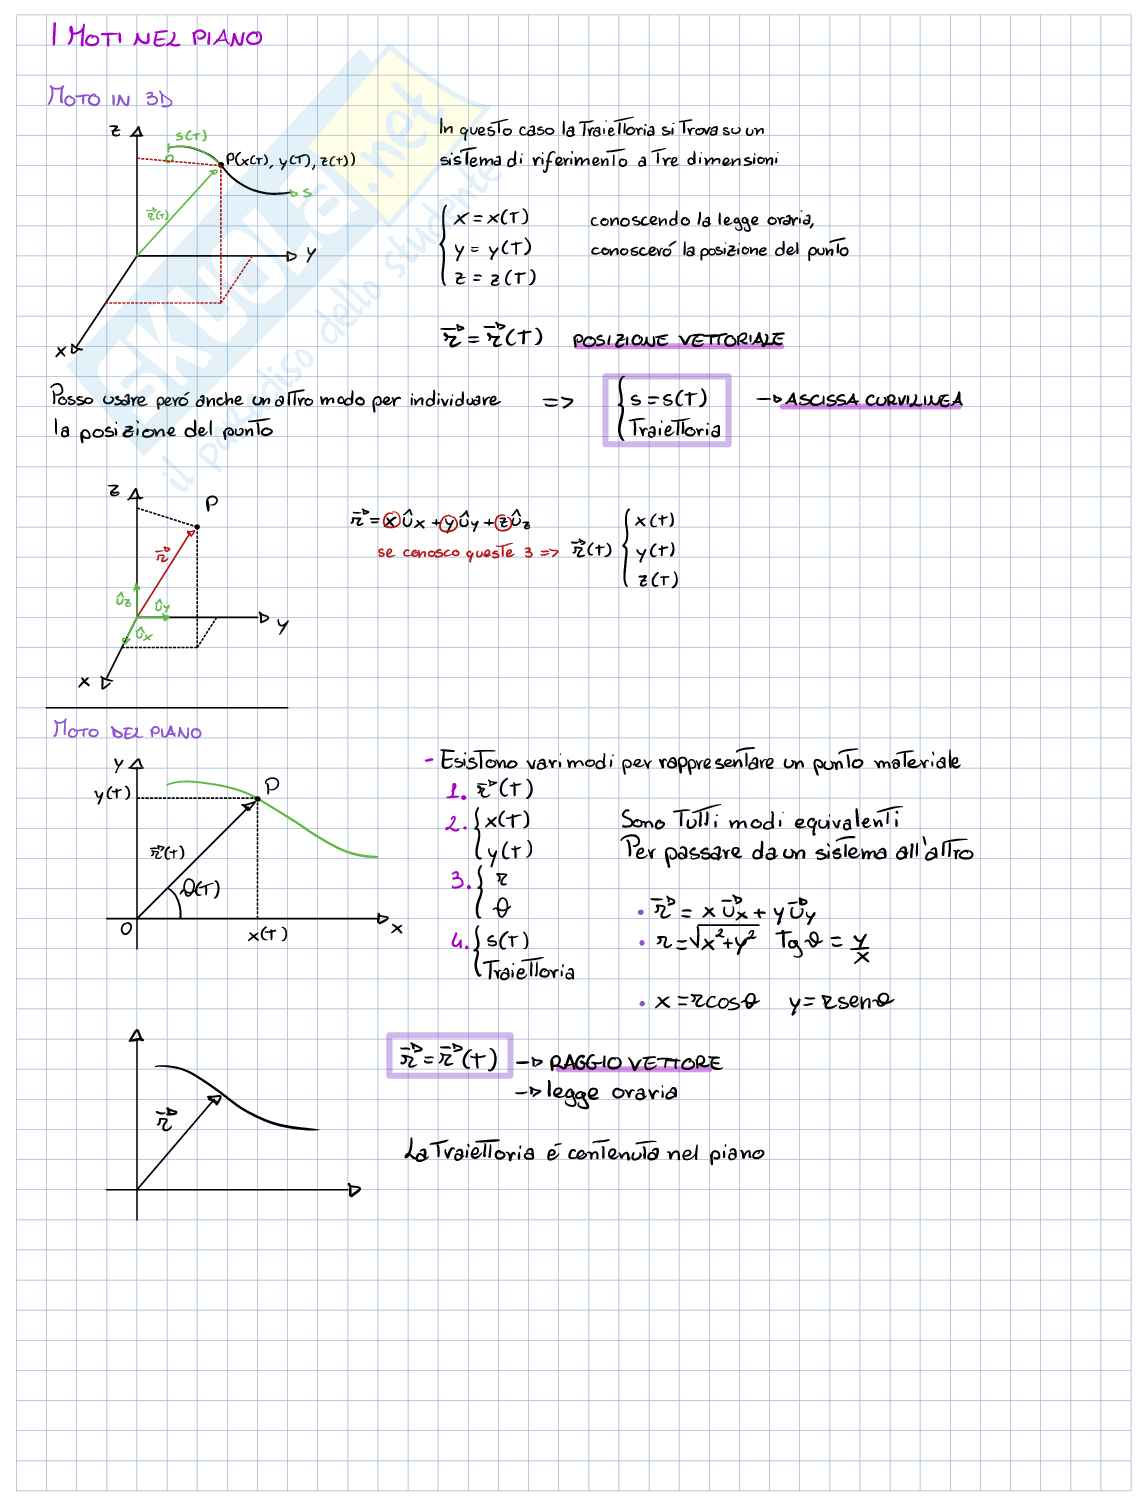 I MOTI NEL PIANO
MOTO IN 3D
z
s(t)
O
P(x(t), y(t), z(t))
s
r⃗(t)
y
x
In questo caso la Traiettoria si Trova su un
sistema di riferimento a Tre dimensioni
{ x = x(t)
y = y(t)
z = z(t)
conoscendo la legge oraria,
conosceró la posizione del punto
r⃗ = r⃗(t) POSIZIONE VETTORIALE
Posso usare peró anche un altro modo per individuare
la posizione del punto
=>
{ s = s(t)
Traiettoria
→ ASCISSA CURVILINEA
SKUOLA.net
il paradiso dello studente
z
P
r⃗
ûz
ûy
ûx
y
x
r⃗ = x ûx + y ûy + z ûz
se conosco queste 3 => r⃗(t)
{ x(t)
y(t)
z(t)
MOTO DEL PIANO
y
y(t)
P
r⃗(t)
θ(t)
O
x(t)
x
- Esistono vari modi per rappresentare un punto materiale
1. r⃗(t)
2. { x(t)
y(t)
3. { r
θ
4. { s(t)
Traiettoria
Sono Tutti modi equivalenti
Per passare da un sistema all'altro
• r⃗ = x u⃗x + y u⃗y
• r = √x²+y² Tg θ = y/x
• x = r cos θ y = r sen θ
r⃗
r⃗ = r⃗(t) → RAGGIO VETTORE
→ legge oraria
La Traiettoria é contenuta nel piano